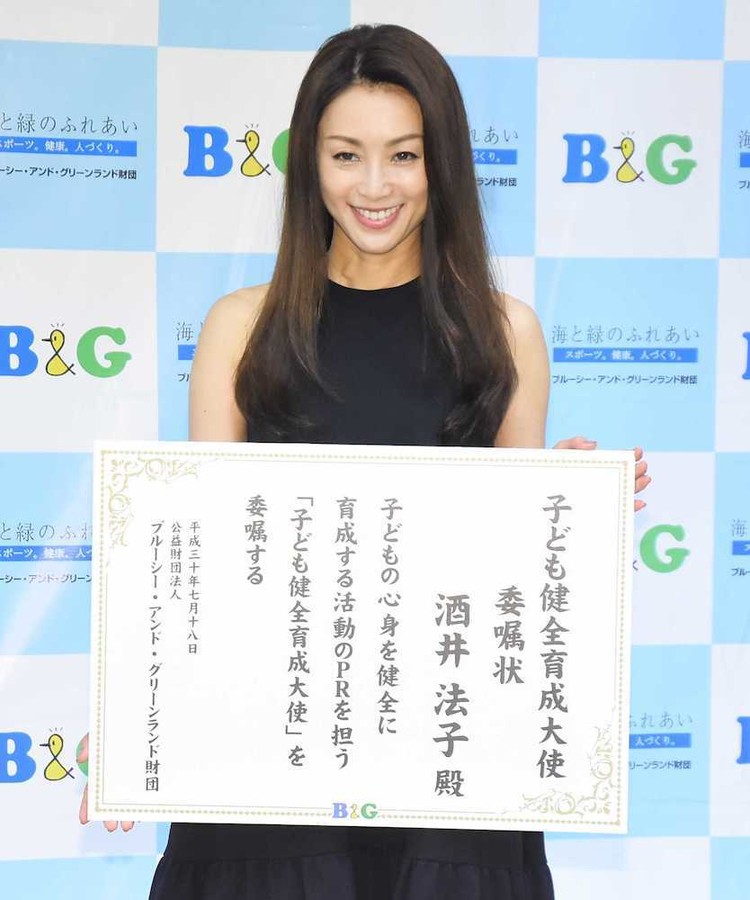 と緑のふれあい
スポーツ。健康。人づくり。
ルーシー・アンド・グリーンランド財団
B&G
れあい
ランド財団
B&G
海
B&G
海と緑のふれあい
スポーツ。健康。人づくり。
ブルーシー・アンド・グリーンランド財団
子ども健全育成大使
委嘱状
酒井 法子 殿
子どもの心身を健全に
育成する活動のPRを担う
「子ども健全育成大使」を
委嘱する
平成三十年七月十八日
公益財団法人
ブルーシー・アンド・グリーンランド財団
B&G
と緑のふれ
スポーツ。健康。人
ーシー・アンド・グリーン
G
海
ブル
B&
ふれあい
人づくり。
ランド財団